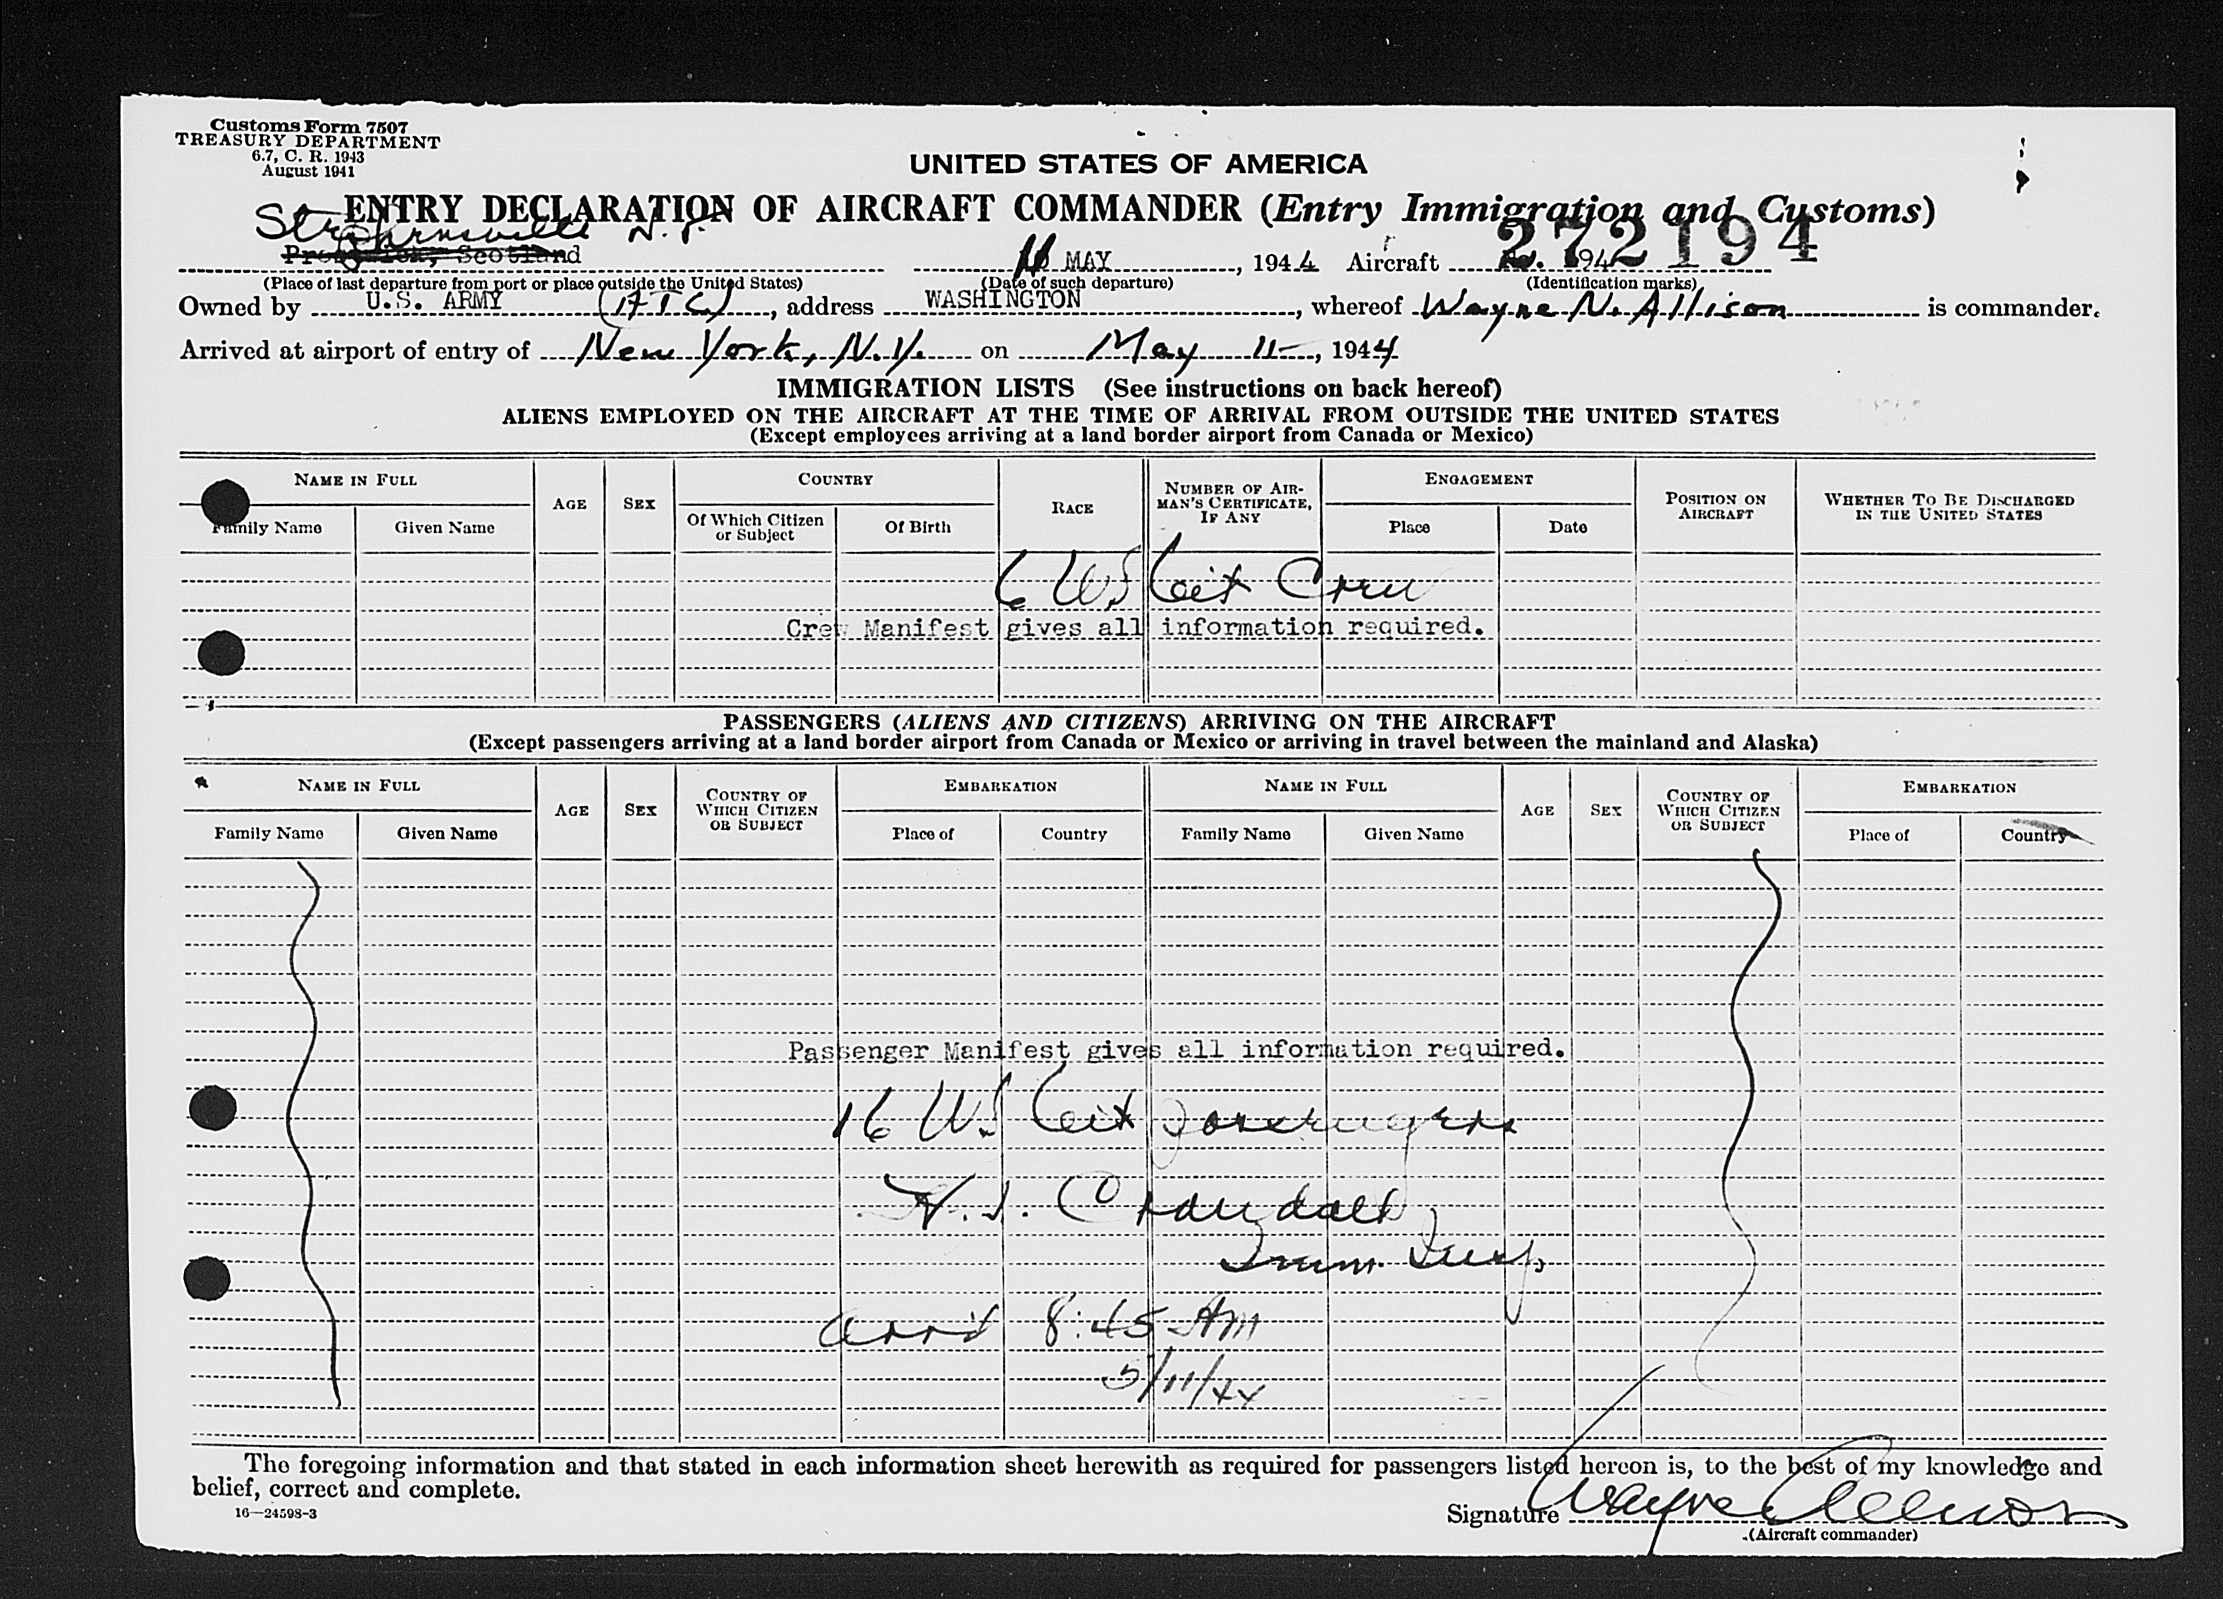 Customs Form 7507
TREASURY DEPARTMENT
6.7, C. R. 1943
August 1941
UNITED STATES OF AMERICA
ENTRY DECLARATION OF AIRCRAFT COMMANDER (Entry Immigration and Customs)
N.F.
Prestwick, Scotland MAY, 1944 Aircraft No. 194 272194
(Place of last departure from port or place outside the United States) (Date of such departure) (Identification marks)
Owned by U.S. ARMY (ATC), address WASHINGTON, whereof Wayne N. Allison is commander.
Arrived at airport of entry of New York, N.Y. on May 11, 1944
IMMIGRATION LISTS (See instructions on back hereof)
ALIENS EMPLOYED ON THE AIRCRAFT AT THE TIME OF ARRIVAL FROM OUTSIDE THE UNITED STATES
(Except employees arriving at a land border airport from Canada or Mexico)
NAME IN FULL AGE SEX COUNTRY RACE NUMBER OF AIRMAN'S CERTIFICATE, IF ANY ENGAGEMENT POSITION ON AIRCRAFT WHETHER TO BE DISCHARGED IN THE UNITED STATES
Family Name Given Name Of Which Citizen or Subject Of Birth Place Date
6 US Cit Crew
Crew Manifest gives all information required.
PASSENGERS (ALIENS AND CITIZENS) ARRIVING ON THE AIRCRAFT
(Except passengers arriving at a land border airport from Canada or Mexico or arriving in travel between the mainland and Alaska)
NAME IN FULL AGE SEX COUNTRY OF WHICH CITIZEN OR SUBJECT EMBARKATION NAME IN FULL AGE SEX COUNTRY OF WHICH CITIZEN OR SUBJECT EMBARKATION
Family Name Given Name Place of Country Family Name Given Name Place of Country
Passenger Manifest gives all information required.
16 US Cit passengers
Crandall
Imm. Insp.
arr'd 8:45 AM
5/11/44
The foregoing information and that stated in each information sheet herewith as required for passengers listed hereon is, to the best of my knowledge and
belief, correct and complete.
16—24598-3
Signature Wayne Allison
(Aircraft commander)